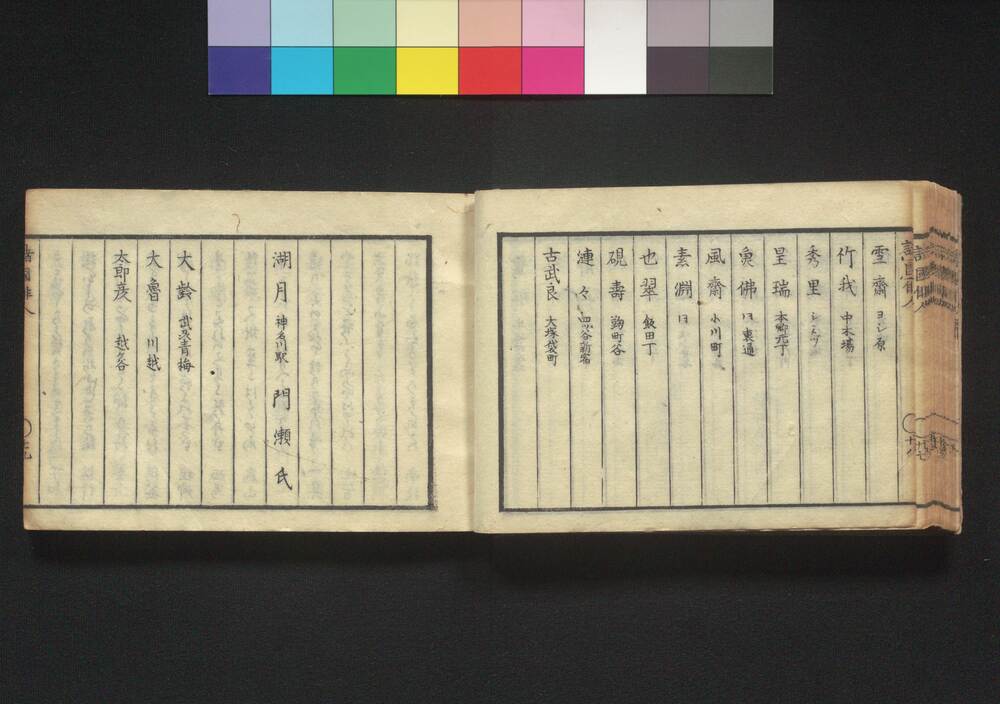 雪齋 ヨシ原
竹我 中木場
秀里
呈瑞 本郷六丁
魚佛 仝 裏通
風齋 小川町
素淵 仝
也翠 飯田丁
硯壽 麹町谷
漣々 四ツ谷新宿
古武良 大塚袋町
湖月 神奈川駅 門瀬氏
大齢 武州青梅
大魯 川越
太郎彦 越谷